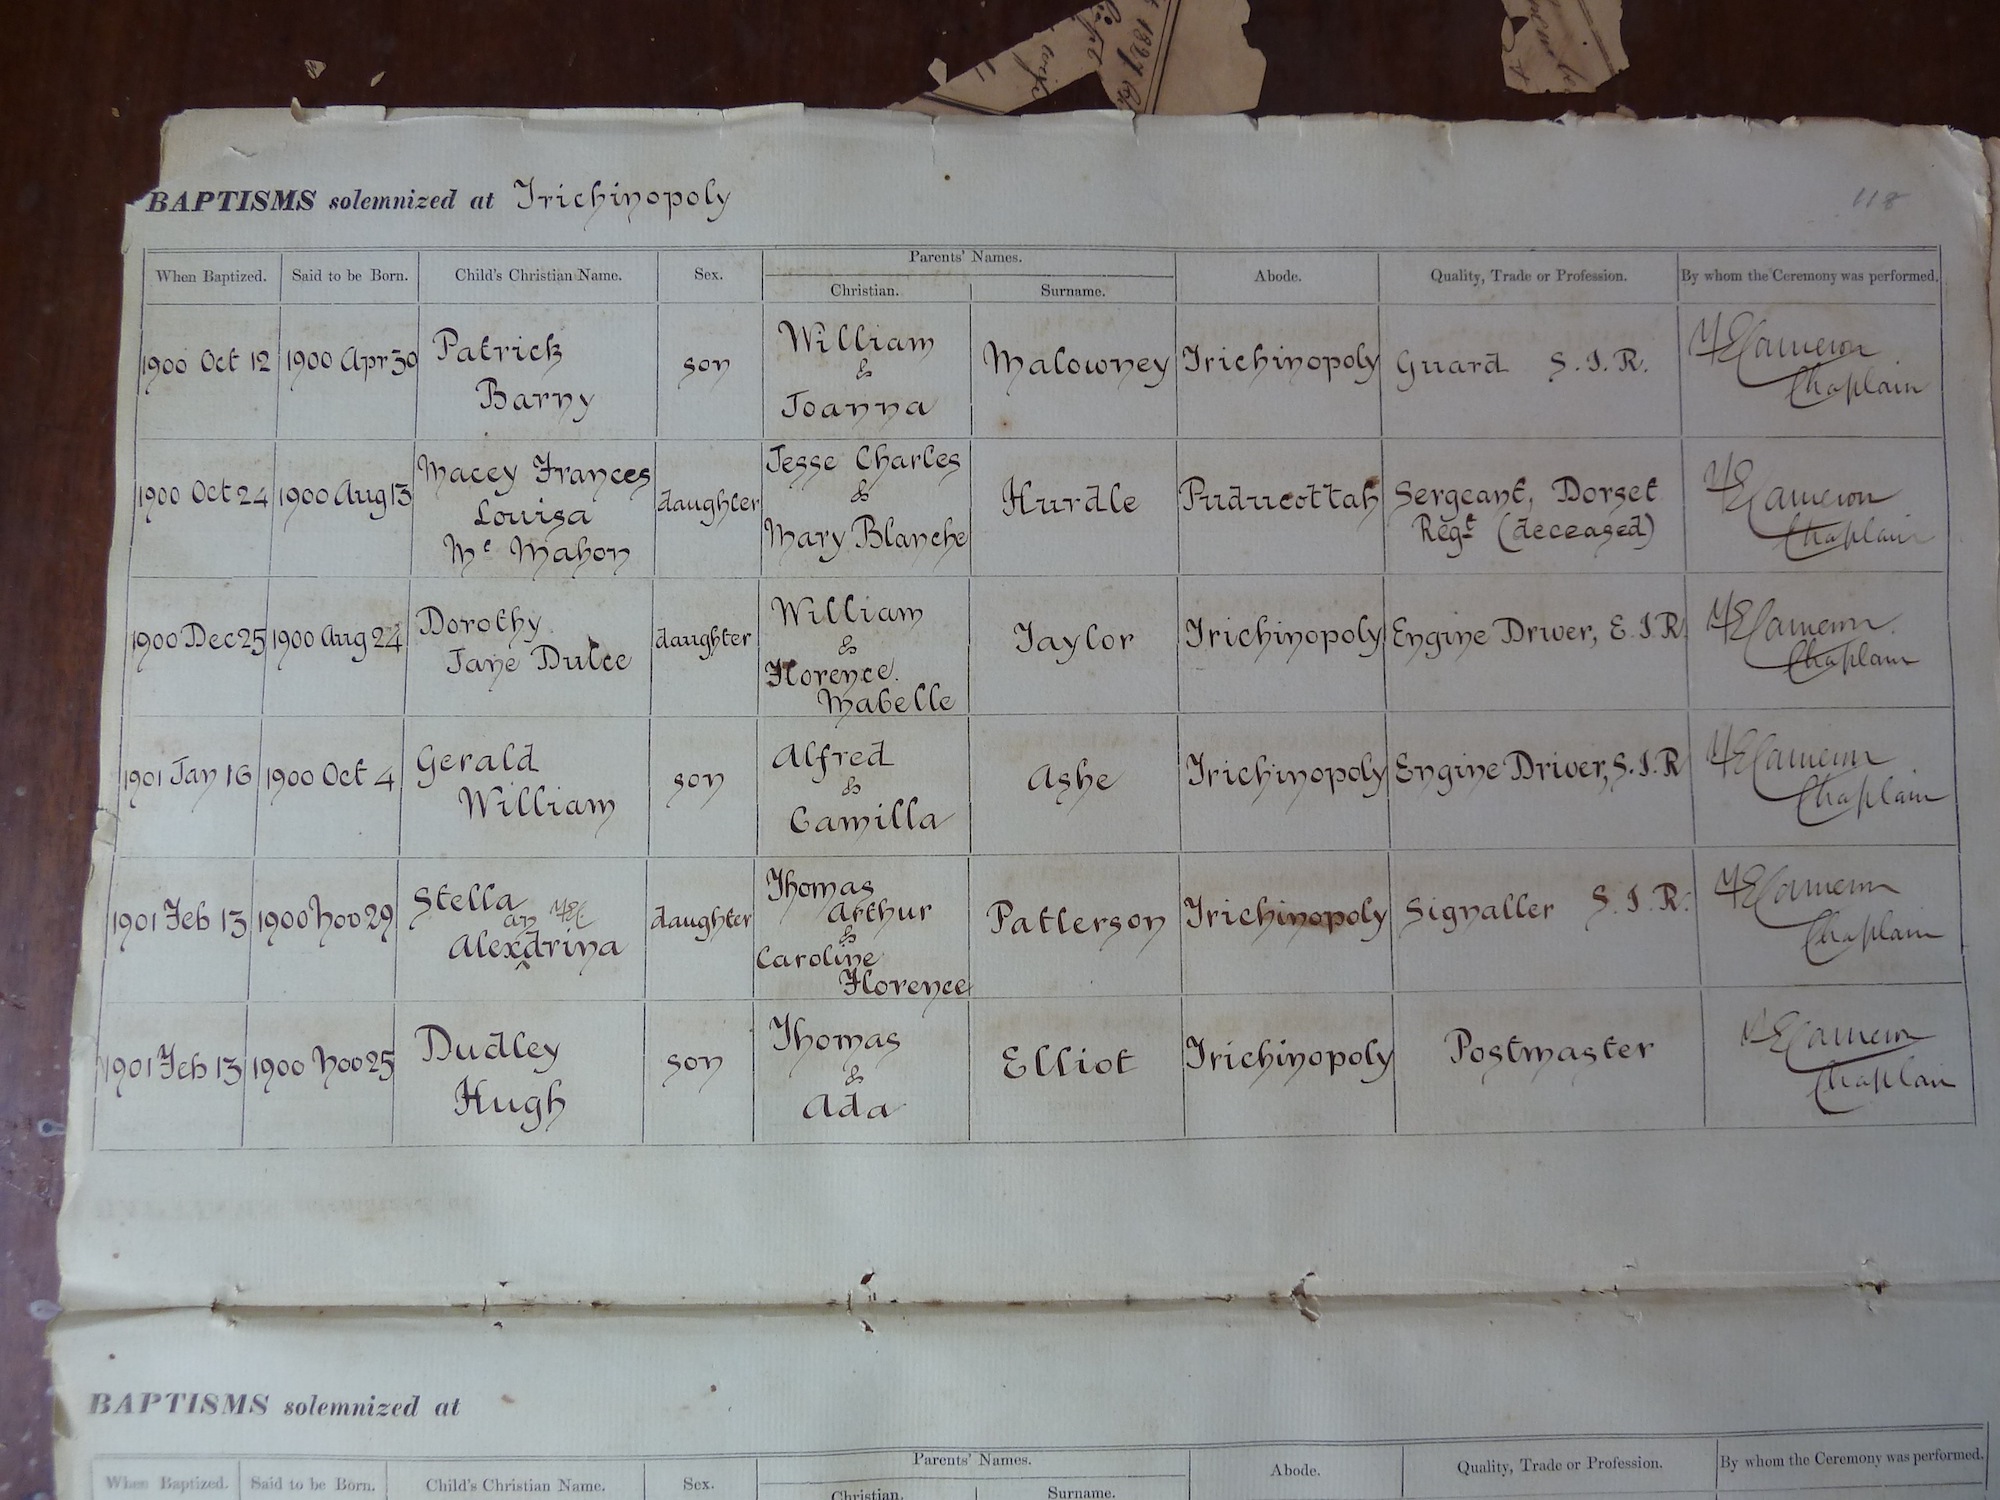 BAPTISMS solemnized at Trichinopoly
118
When Baptized. Said to be Born. Child's Christian Name. Sex. Parents' Names. Abode. Quality, Trade or Profession. By whom the Ceremony was performed.
Christian. Surname.
1900 Oct 12 1900 Apr 30 Patrick Barny son William & Joanna Malowney Trichinopoly Guard S.I.R. Cameron Chaplain
1900 Oct 24 1900 Aug 13 Macey Frances Louisa Mc Mahon daughter Jesse Charles & Mary Blanche Hurdle Puducottah Sergeant, Dorset Regt (deceased) Cameron Chaplain
1900 Dec 25 1900 Aug 24 Dorothy Jane Dulce daughter William & Florence Mabelle Taylor Trichinopoly Engine Driver, E.I.R. Cameron Chaplain
1901 Jan 16 1900 Oct 4 Gerald William son Alfred & Camilla Ashe Trichinopoly Engine Driver, S.I.R Cameron Chaplain
1901 Feb 13 1900 Nov 29 Stella Alexandrina daughter Thomas Arthur & Caroline Florence Patterson Trichinopoly Signaller S.I.R. Cameron Chaplain
1901 Feb 13 1900 Nov 25 Dudley Hugh son Thomas & Ada Elliot Trichinopoly Postmaster Cameron Chaplain
BAPTISMS solemnized at
When Baptized. Said to be Born. Child's Christian Name. Sex. Parents' Names. Abode. Quality, Trade or Profession. By whom the Ceremony was performed.
Christian. Surname.